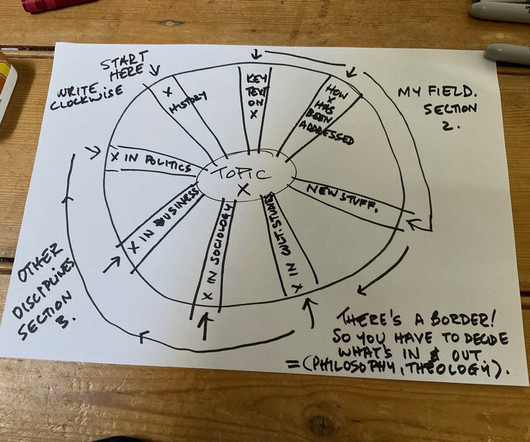 START
HERE
WRITE
CLOCKWISE
X
HISTORY
KEY
TEXT
ON
X
HOW
X
HAS
BEEN
ADDRESSED
MY FIELD.
SECTION
2.
TOPIC
X
NEW STUFF.
X IN CULT. STUDIES
X IN SOCIOLOGY
X IN BUSINESS
X IN POLITICS
OTHER
DISCIPLINES
SECTION
3.
THERE'S A BORDER!
SO YOU HAVE TO DECIDE
WHAT'S IN & OUT.
=(PHILOSOPHY, THEOLOGY).